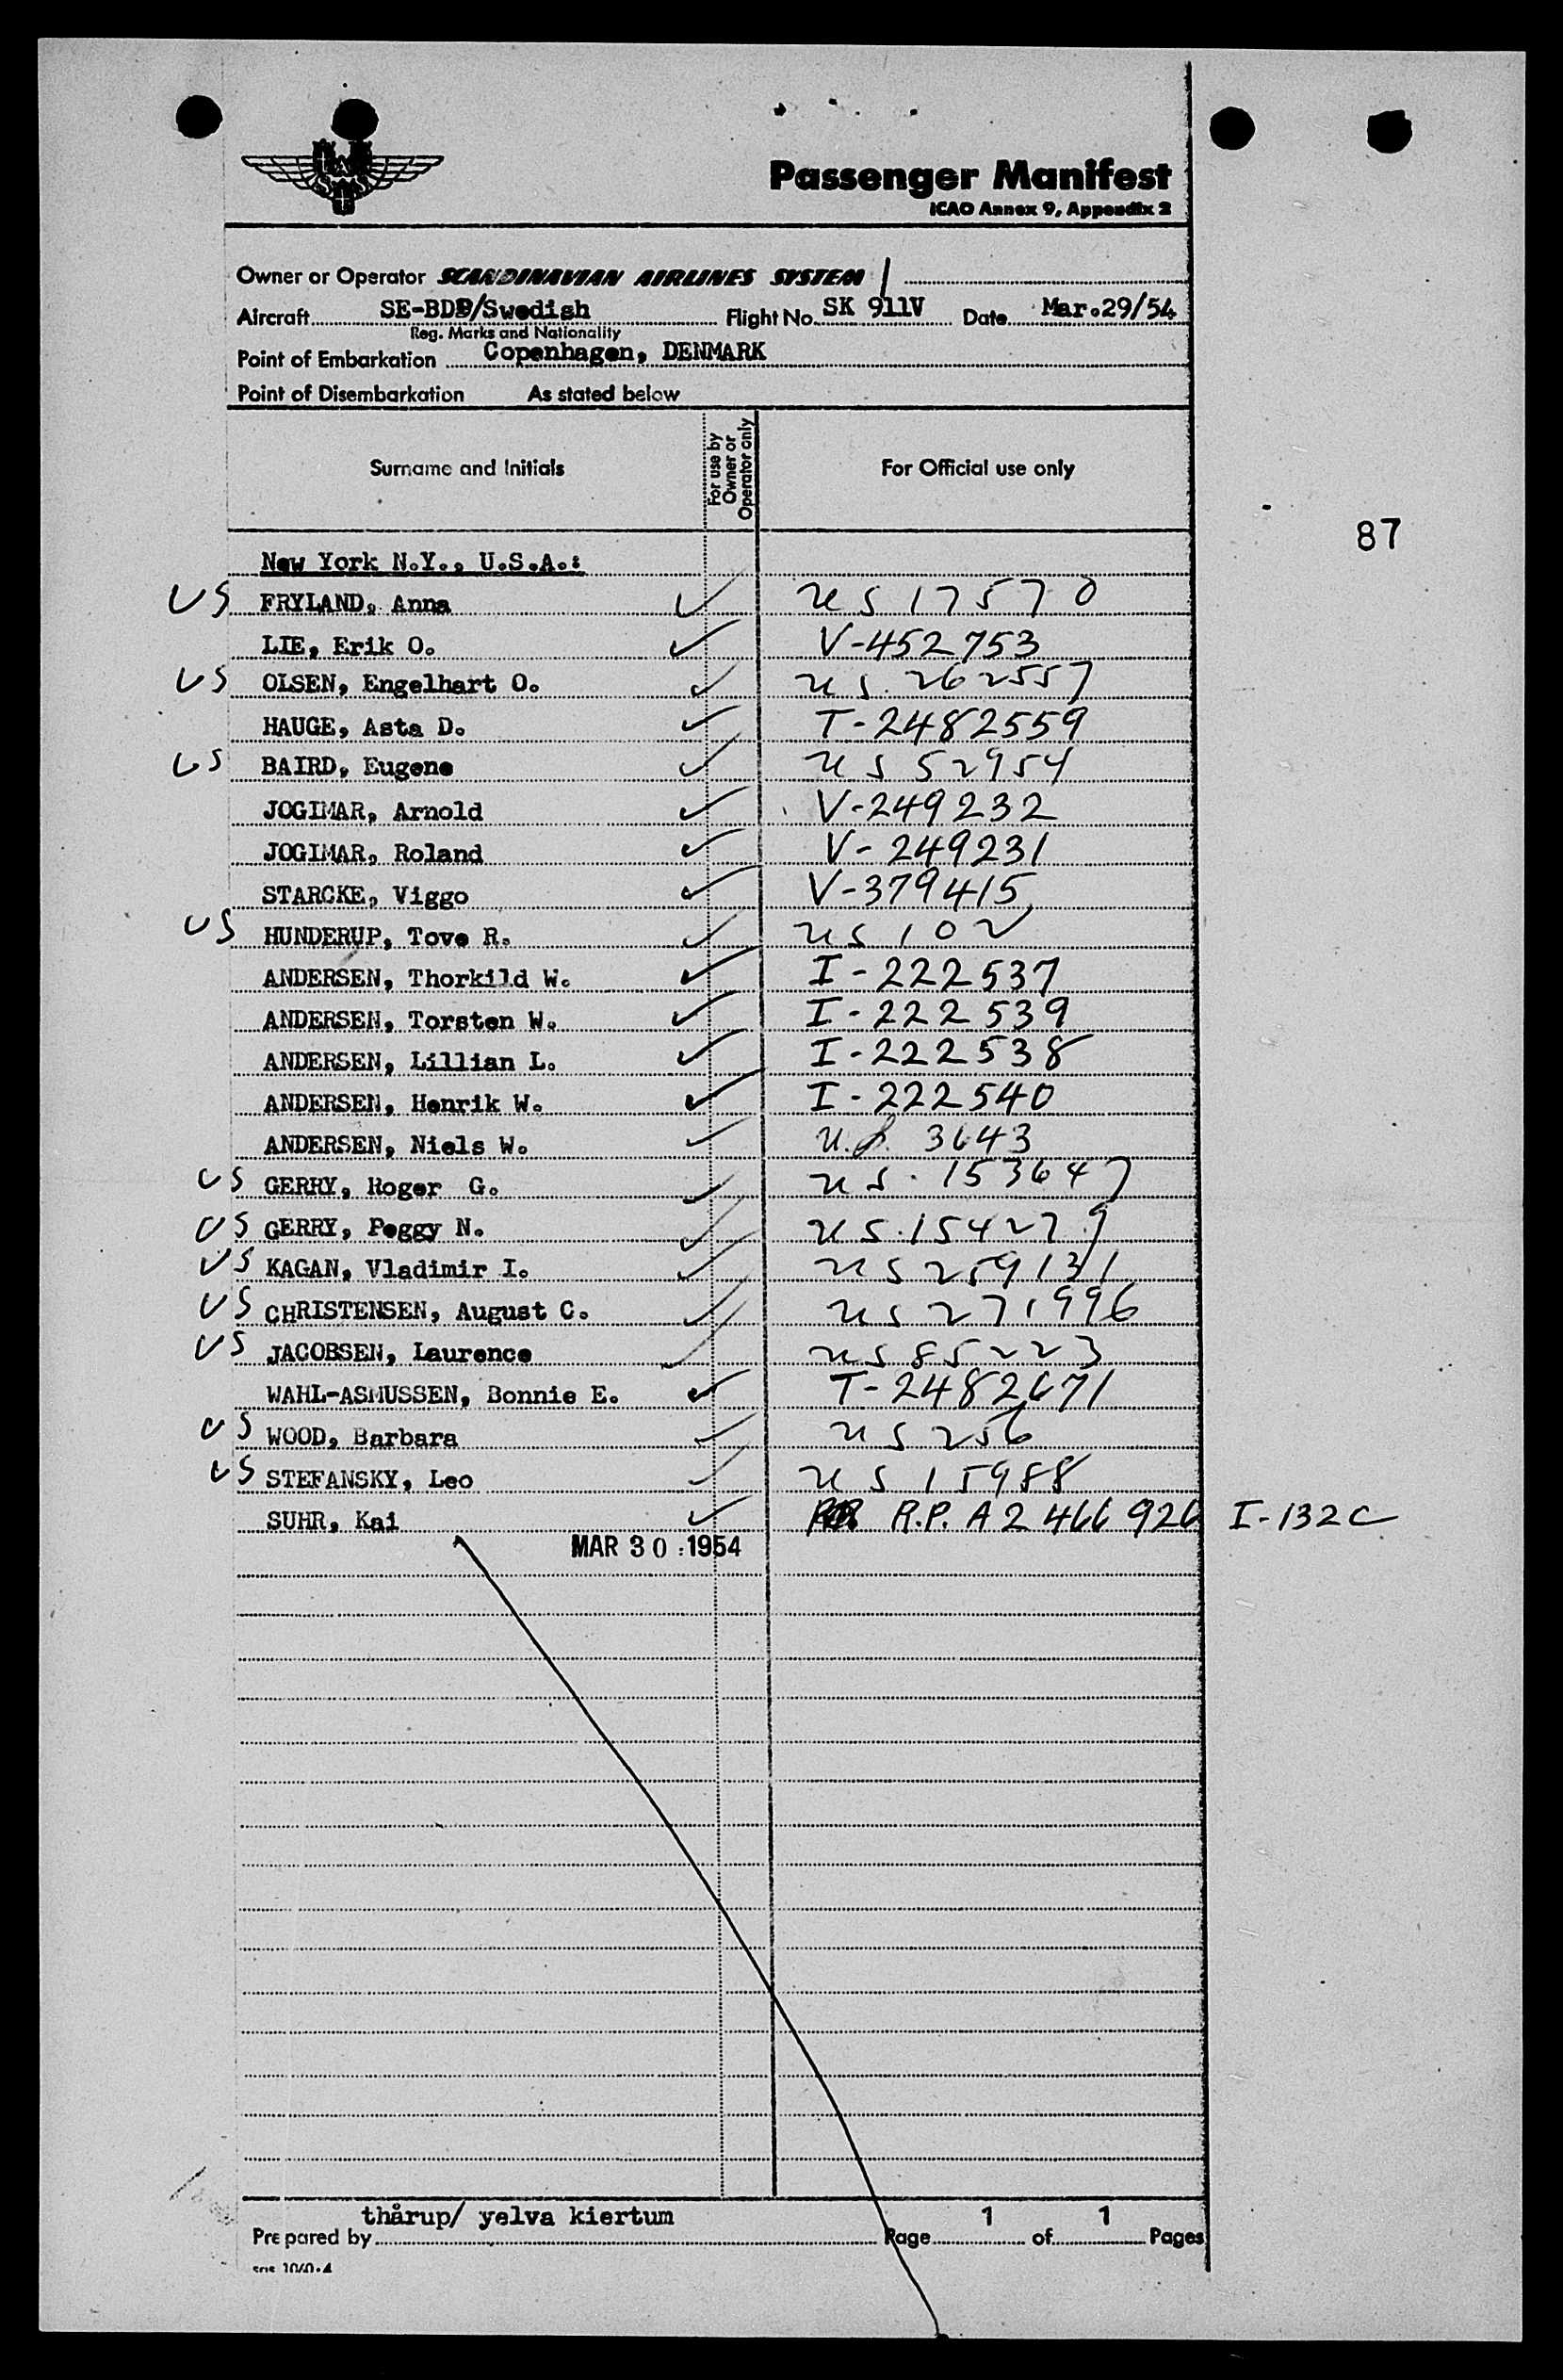 Passenger Manifest
ICAO Annex 9, Appendix 2
Owner or Operator SCANDINAVIAN AIRLINES SYSTEM /
Aircraft SE-BDB/Swedish Flight No. SK 911V Date Mar.29/54
Reg. Marks and Nationality
Point of Embarkation Copenhagen, DENMARK
Point of Disembarkation As stated below
Surname and Initials For use by Owner or Operator only For Official use only
87
New York N.Y., U.S.A.:
US FRYLAND, Anna ✓ US 17570
LIE, Erik O. ✓ V-452753
US OLSEN, Engelhart O. ✓ US. 262557
HAUGE, Asta D. ✓ T-2482559
US BAIRD, Eugene ✓ US 52954
JOGIMAR, Arnold ✓ V-249232
JOGIMAR, Roland ✓ V-249231
STARCKE, Viggo ✓ V-379415
US HUNDERUP, Tove R. ✓ US 102
ANDERSEN, Thorkild W. ✓ I-222537
ANDERSEN, Torsten W. ✓ I-222539
ANDERSEN, Lillian L. ✓ I-222538
ANDERSEN, Henrik W. ✓ I-222540
ANDERSEN, Niels W. ✓ U.S. 3643
US GERRY, Roger G. ✓ US. 153647
US GERRY, Peggy N. ✓ US. 154279
US KAGAN, Vladimir I. ✓ US 259131
US CHRISTENSEN, August C. ✓ US 271996
US JACOBSEN, Laurence ✓ US 85223
WAHL-ASMUSSEN, Bonnie E. ✓ T-2482671
US WOOD, Barbara ✓ US 256
US STEFANSKY, Leo ✓ US 15988
SUHR, Kai ✓ R.P. A2 466 926 I-132C
MAR 30 1954
thårup/ yelva kiertum
Prepared by Page 1 of 1 Pages